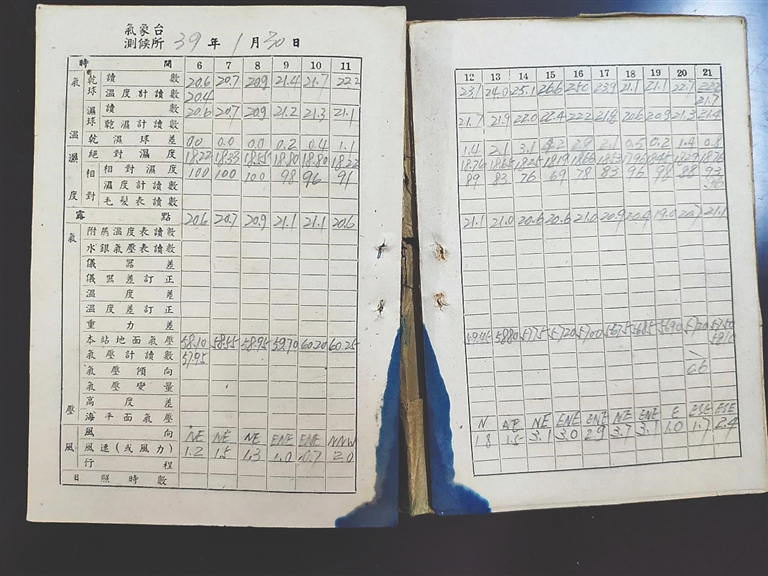 氣象台
測候所 39 年 1 月 30 日
時 間 6 7 8 9 10 11
氣溫 乾球 讀數 20.6 20.7 20.9 21.4 21.7 22.2
溫度計讀數 20.4
濕球 讀數 20.6 20.7 20.9 21.2 21.3 21.1
乾濕計讀數
乾濕球差 0.0 0.0 0.0 0.2 0.4 1.1
濕度 絕對濕度 18.22 18.33 18.55 18.80 18.80 18.22
相對 相對濕度 100 100 100 98 96 91
濕度計讀數
毛髮表讀數
露點 20.6 20.7 20.9 21.1 21.1 20.6
氣壓 附屬溫度表讀數
水銀氣壓表讀數
儀器差
儀器差訂正
溫度差
溫度差訂正
重力差
本站地面氣壓 58.10 58.55 58.95 59.70 60.20 60.25
氣壓計讀數 57.95
氣壓傾向
氣壓變量
高度差
海平面氣壓
風 風向 NE NE NE ENE ENE NNW
風速(或風力) 1.2 1.5 1.3 1.0 0.7 2.0
行程
日照時數
12 13 14 15 16 17 18 19 20 21
23.1 24.0 25.1 26.6 23.9 21.1 21.1 22.7 22.2
21.7
21.7 21.9 22.0 22.4 22.2 21.8 20.6 20.9 21.3 21.4
1.4 2.1 3.1 2.1 0.5 0.2 1.4 0.8
18.76 18.65 18.25 18.19 18.45 18.29 18.76
89 83 76 69 78 83 96 98 88 93
21.1 21.0 20.6 20.6 21.0 20.9 20.4 20.7 21.1
58.80 57.75 57.20 57.00 56.75 56.85 56.90 57.20 57.50
0.6
N NE NE ENE ENE NE ENE E ESE ESE
1.8 1.5 3.1 3.0 2.9 3.7 3.1 1.0 1.7 2.4